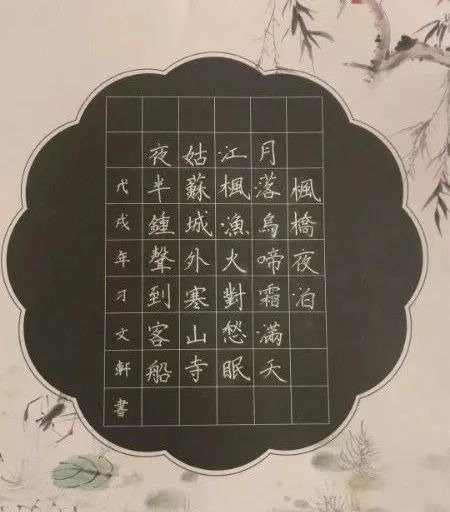 楓橋夜泊
月落烏啼霜滿天
江楓漁火對愁眠
姑蘇城外寒山寺
夜半鍾聲到客船
戊戌年刁文軒書